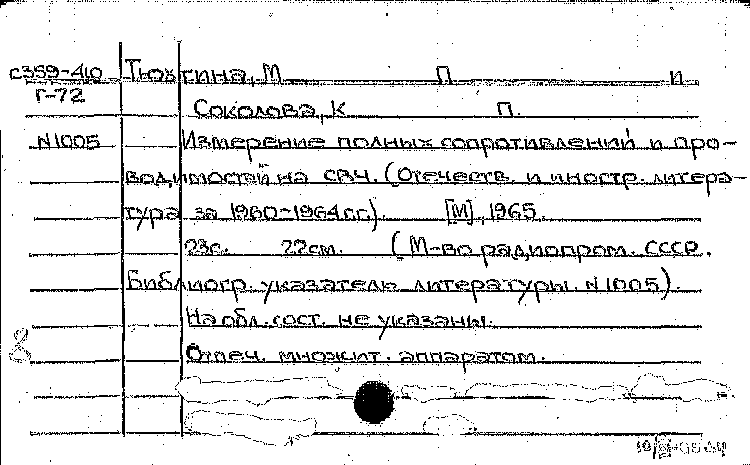 с359-410 Тюхтина, М П и
Г-72
Соколова, К П.
N1005 Измерение полных сопротивлений и про-
водимостей на СВЧ. (Отечеств. и иностр. литера-
тура за 1960-1964 гг.). [М], 1965.
23с. 22см. (М-во радиопром. СССР.
Библиогр. указатель литературы. N1005).
На обл. сост. не указаны.
Отпеч. множит. аппаратом.
8